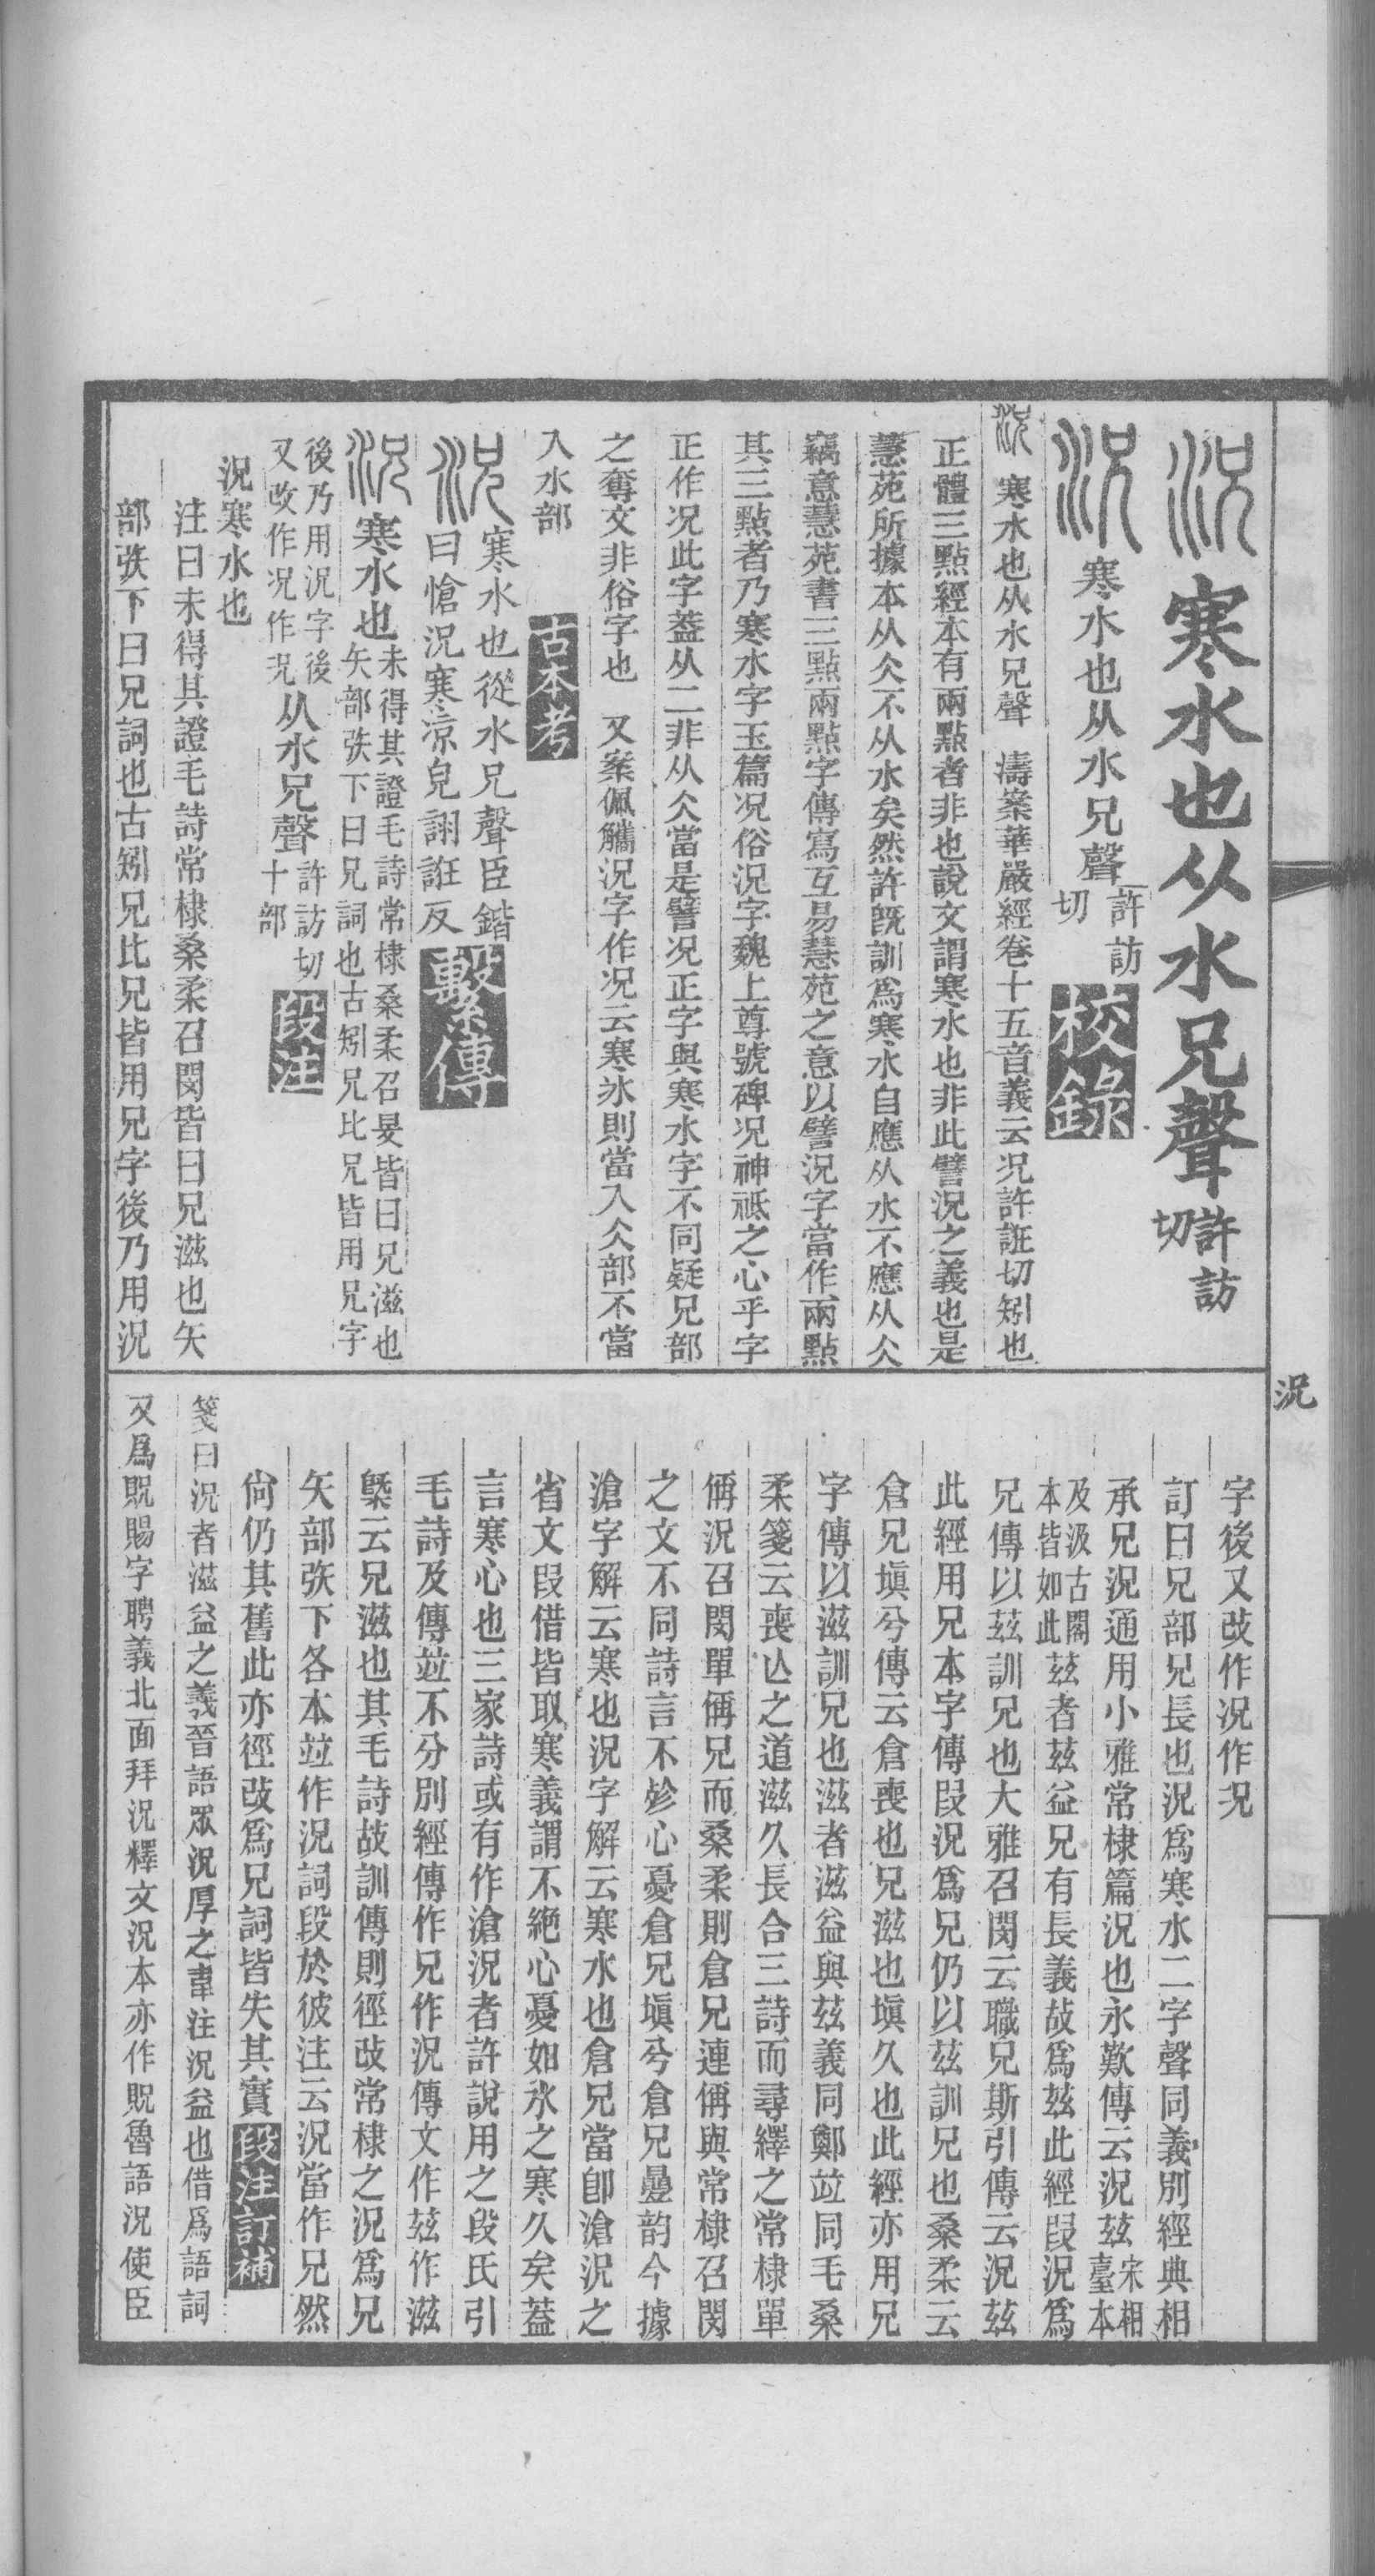 況寒水也从水兄聲許訪切
況寒水也从水兄聲許訪切校錄
況寒水也从水兄聲　濤案華嚴經卷十五音義云况許誑切矧也
正體三點經本有兩點者非也說文謂寒水也非此譬況之義也是
慧苑所據本从仌不从水矣然許旣訓爲寒水自應从水不應从仌
竊意慧苑書三點兩點字傳寫互易慧苑之意以譬況字當作兩點
其三點者乃寒水字玉篇况俗況字魏上尊號碑况神祗之心乎字
正作况此字葢从二非从仌當是譬况正字與寒水字不同疑兄部
之奪文非俗字也　又案佩觿況字作况云寒冰則當入仌部不當
入水部　古本考
況寒水也從水兄聲臣鍇
曰愴況寒凉皃詡誑反繫傳
況寒水也未得其證毛詩常棣桑柔召旻皆曰兄滋也
矢部矤下曰兄詞也古矧兄比兄皆用兄字
後乃用況字後
又改作况作况从水兄聲許訪切
十部段注
況寒水也
注曰未得其證毛詩常棣桑柔召閔皆曰兄滋也矢
部矤下曰兄詞也古矧兄比兄皆用兄字後乃用況
況
字後又改作况作况
訂曰兄部兄長也況爲寒水二字聲同義別經典相
承兄況通用小雅常棣篇況也永歎傳云況兹宋相
臺本
及汲古閣
本皆如此兹者兹益兄有長義故爲兹此經叚況爲
兄傳以兹訓兄也大雅召閔云職兄斯引傳云況兹
此經用兄本字傳叚況爲兄仍以兹訓兄也桑柔云
倉兄塡兮傳云倉喪也兄滋也塡久也此經亦用兄
字傳以滋訓兄也滋者滋益與兹義同鄭竝同毛桑
柔箋云喪亾之道滋久長合三詩而尋繹之常棣單
偁況召閔單偁兄而桑柔則倉兄連偁與常棣召閔
之文不同詩言不殄心憂倉兄塡兮倉兄曡韵今據
滄字解云寒也況字解云寒水也倉兄當卽滄況之
省文叚借皆取寒義謂不絕心憂如氷之寒久矣葢
言寒心也三家詩或有作滄況者許說用之段氏引
毛詩及傳竝不分別經傳作兄作況傳文作兹作滋
槩云兄滋也其毛詩故訓傳則徑改常棣之況爲兄
矢部矤下各本竝作況詞段於彼注云況當作兄然
尙仍其舊此亦徑改爲兄詞皆失其實段注訂補
箋曰況者滋益之義晉語眾況厚之韋注況益也借爲語詞
又爲貺賜字聘義北面拜況釋文況本亦作貺魯語況使臣